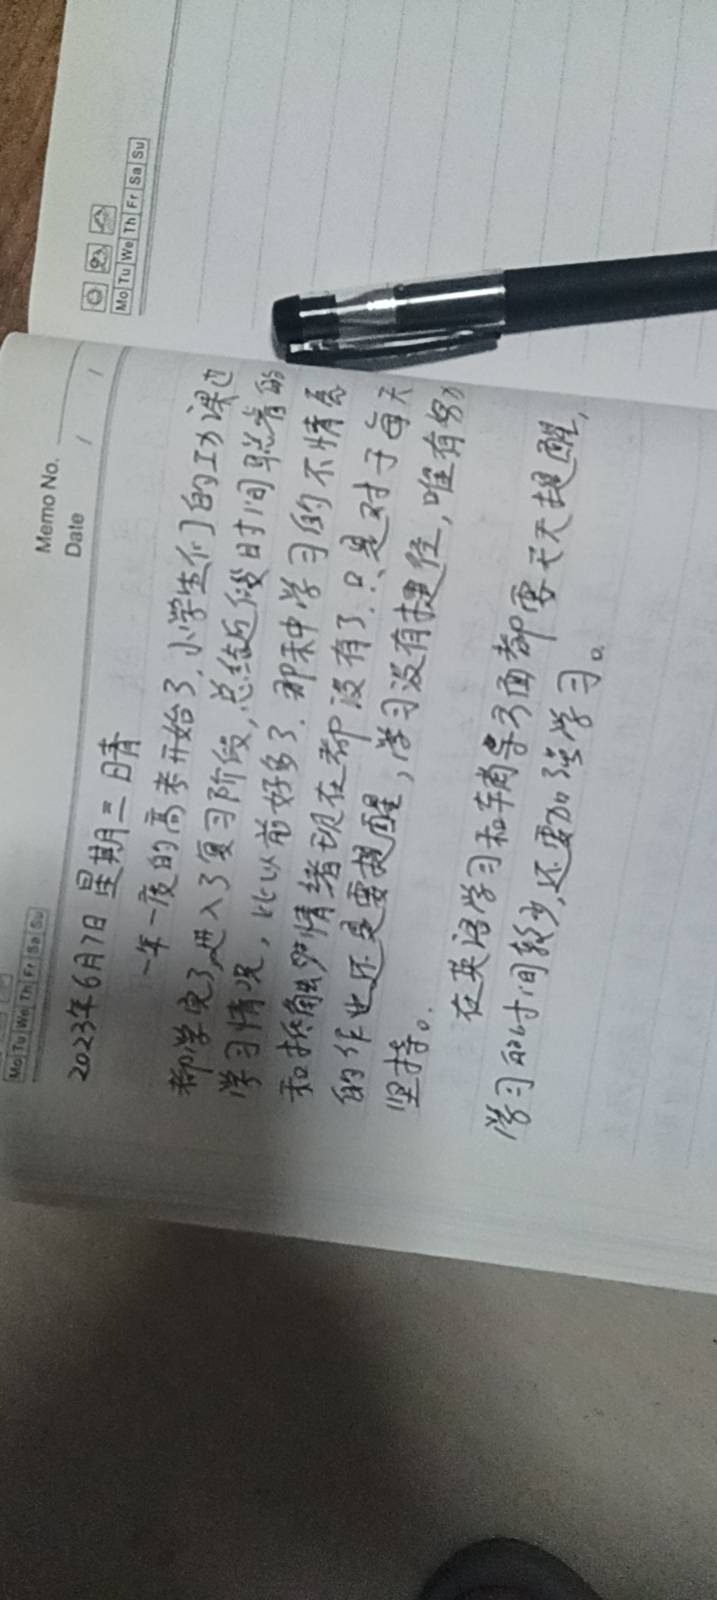 Mo Tu We Th Fr Sa Su
Memo No.
Date / /
Mo Tu We Th Fr Sa Su
2023年6月7日 星期三 晴
一年一度的高考开始了，小学生们的功课也
都学完了，进入了复习阶段，总结近段时间
学习情况，比以前好多了．那种学习的不情愿
和抵触情绪现在都没有了．只是对于每天
的作业还是要提醒，学习没有捷径，唯有努力
坚持。
在英语学习和 方面都要天天提醒，
学习的时间较少，还要加强学习。